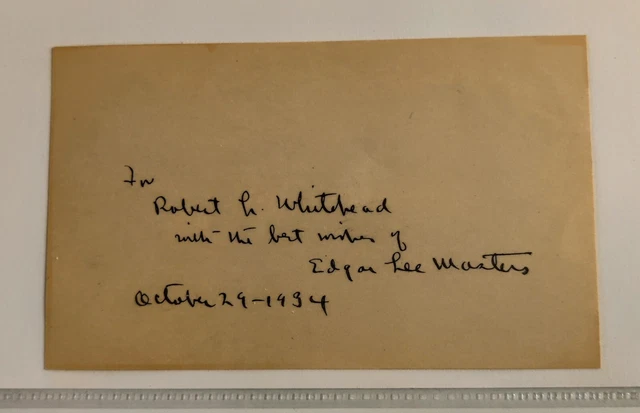 For
Robert L. Whitehead
with the best wishes of
Edgar Lee Masters
October 29-1934